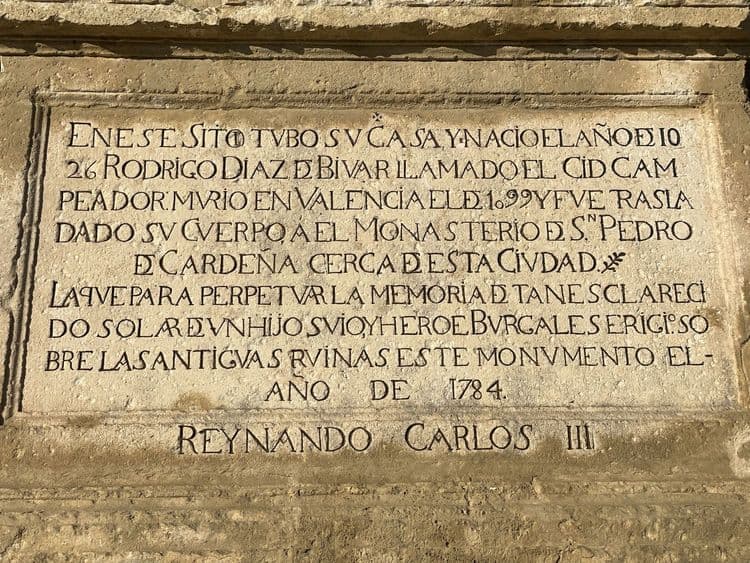 EN ESE SITIO TVBO SV CASA Y NACIO EL AÑO DE 10
26 RODRIGO DIAZ DE BIVAR LLAMADO EL CID CAM
PEADOR MVRIO EN VALENCIA EL DE 1099 Y FVE TRASLA
DADO SV CVERPO A EL MONASTERIO DE S.N PEDRO
DE CARDEÑA CERCA DE ESTA CIVDAD.
LA QVE PARA PERPETVAR LA MEMORIA DE TAN ESCLARECI
DO SOLAR DE VN HIJO SVIO, Y HEROE BVRGALES ERIGIO SO
BRE LAS ANTIGVAS RVINAS ESTE MONVMENTO EL-
AÑO DE 1784.
REYNANDO CARLOS III